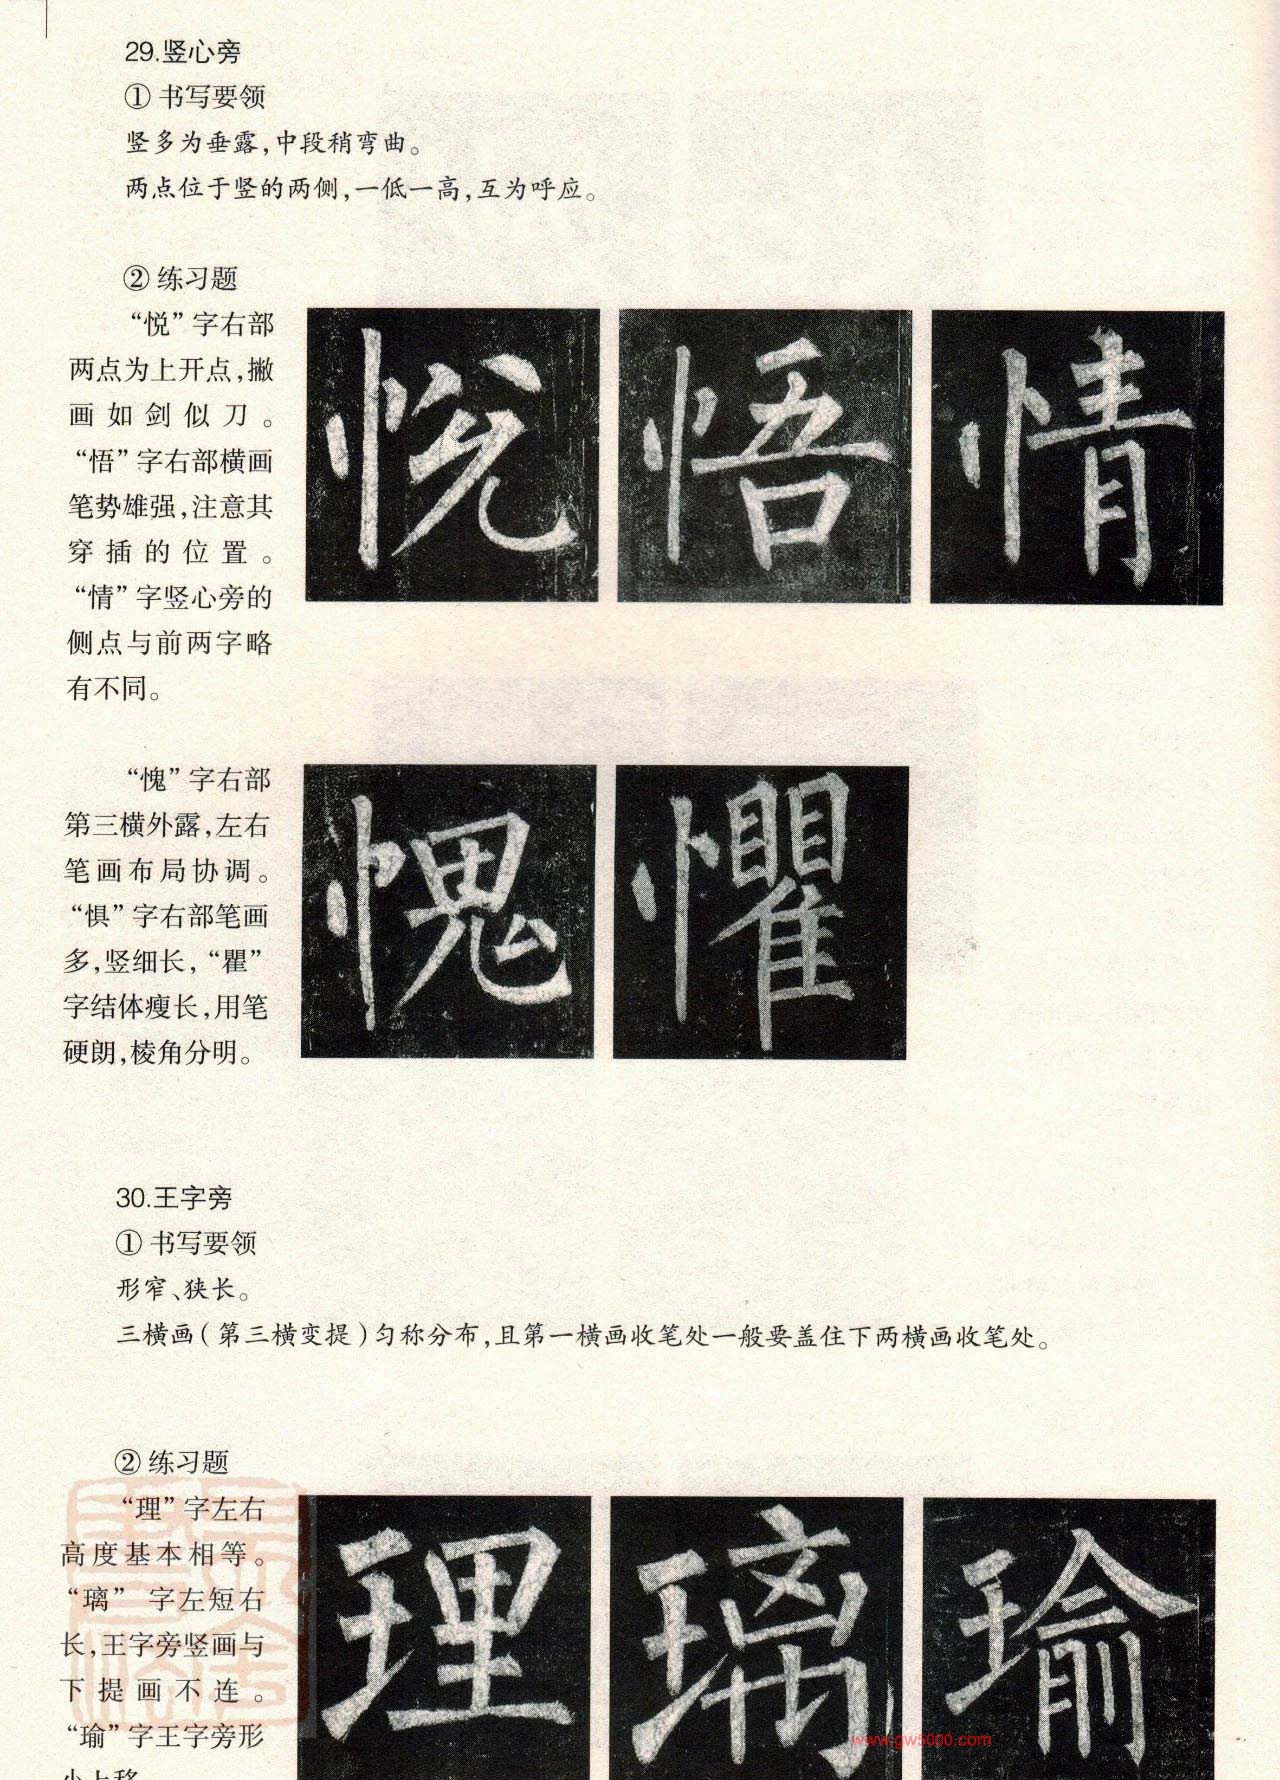 29.竖心旁
① 书写要领
竖多为垂露,中段稍弯曲。
两点位于竖的两侧,一低一高,互为呼应。
② 练习题
“悦”字右部
两点为上开点,撇
画如剑似刀。
“悟”字右部横画
笔势雄强,注意其
穿插的位置。
“情”字竖心旁的
侧点与前两字略
有不同。
悦
悟
情
“愧”字右部
第三横外露,左右
笔画布局协调。
“惧”字右部笔画
多,竖细长,“瞿”
字结体瘦长,用笔
硬朗,棱角分明。
愧
懼
30.王字旁
① 书写要领
形窄、狭长。
三横画(第三横变提)匀称分布,且第一横画收笔处一般要盖住下两横画收笔处。
② 练习题
“理”字左右
高度基本相等。
“璃” 字左短右
长,王字旁竖画与
下提画不连。
“瑜”字王字旁形
小上移
理
璃
瑜
www.gw5000.com